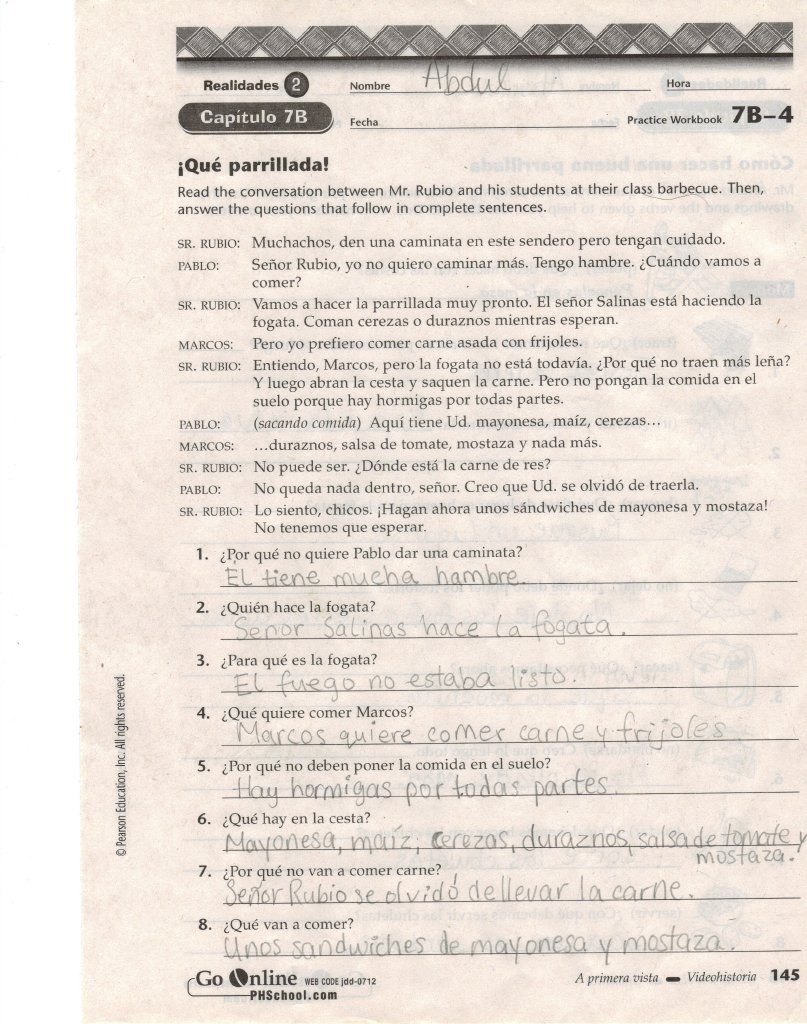 Realidades 2 Nombre Abdul Hora
Capítulo 7B Fecha Practice Workbook 7B–4
¡Qué parrillada!
Read the conversation between Mr. Rubio and his students at their class barbecue. Then,
answer the questions that follow in complete sentences.
SR. RUBIO: Muchachos, den una caminata en este sendero pero tengan cuidado.
PABLO: Señor Rubio, yo no quiero caminar más. Tengo hambre. ¿Cuándo vamos a
comer?
SR. RUBIO: Vamos a hacer la parrillada muy pronto. El señor Salinas está haciendo la
fogata. Coman cerezas o duraznos mientras esperan.
MARCOS: Pero yo prefiero comer carne asada con frijoles.
SR. RUBIO: Entiendo, Marcos, pero la fogata no está todavía. ¿Por qué no traen más leña?
Y luego abran la cesta y saquen la carne. Pero no pongan la comida en el
suelo porque hay hormigas por todas partes.
PABLO: (sacando comida) Aquí tiene Ud. mayonesa, maíz, cerezas…
MARCOS: …duraznos, salsa de tomate, mostaza y nada más.
SR. RUBIO: No puede ser. ¿Dónde está la carne de res?
PABLO: No queda nada dentro, señor. Creo que Ud. se olvidó de traerla.
SR. RUBIO: Lo siento, chicos. ¡Hagan ahora unos sándwiches de mayonesa y mostaza!
No tenemos que esperar.
1. ¿Por qué no quiere Pablo dar una caminata?
Él tiene mucha hambre.
2. ¿Quién hace la fogata?
Señor Salinas hace la fogata.
3. ¿Para qué es la fogata?
El fuego no estaba listo.
4. ¿Qué quiere comer Marcos?
Marcos quiere comer carne y frijoles
5. ¿Por qué no deben poner la comida en el suelo?
Hay hormigas por todas partes.
6. ¿Qué hay en la cesta?
Mayonesa, maíz, cerezas, duraznos, salsa de tomate y
mostaza.
7. ¿Por qué no van a comer carne?
Señor Rubio se olvidó de llevar la carne.
8. ¿Qué van a comer?
Unos sandwiches de mayonesa y mostaza.
© Pearson Education, Inc. All rights reserved.
Go Online WEB CODE jdd-0712
PHSchool.com
A primera vista — Videohistoria 145